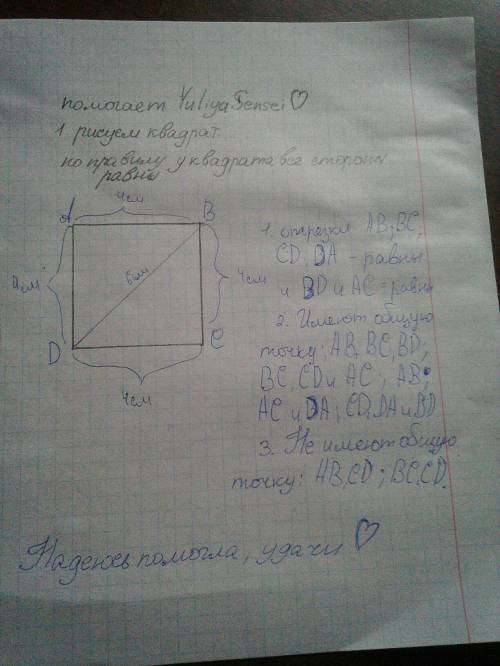 помогает YuliyaSensei♡
1. рисуем квадрат.
по правилу у квадрата все стороны
равны
4см
A
B
4см
6см
4см
D
C
4см
1. отрезки AB; BC;
CD; DA - равны
и BD и AC - равны
2. Имеют общую
точку: AB, BC, BD;
BC, CD и AC; AB;
AC и DA; CD, DA и BD
3. Не имеют общую
точку: AB, CD; BC, CD.
Надеюсь помогла, удачи ♡